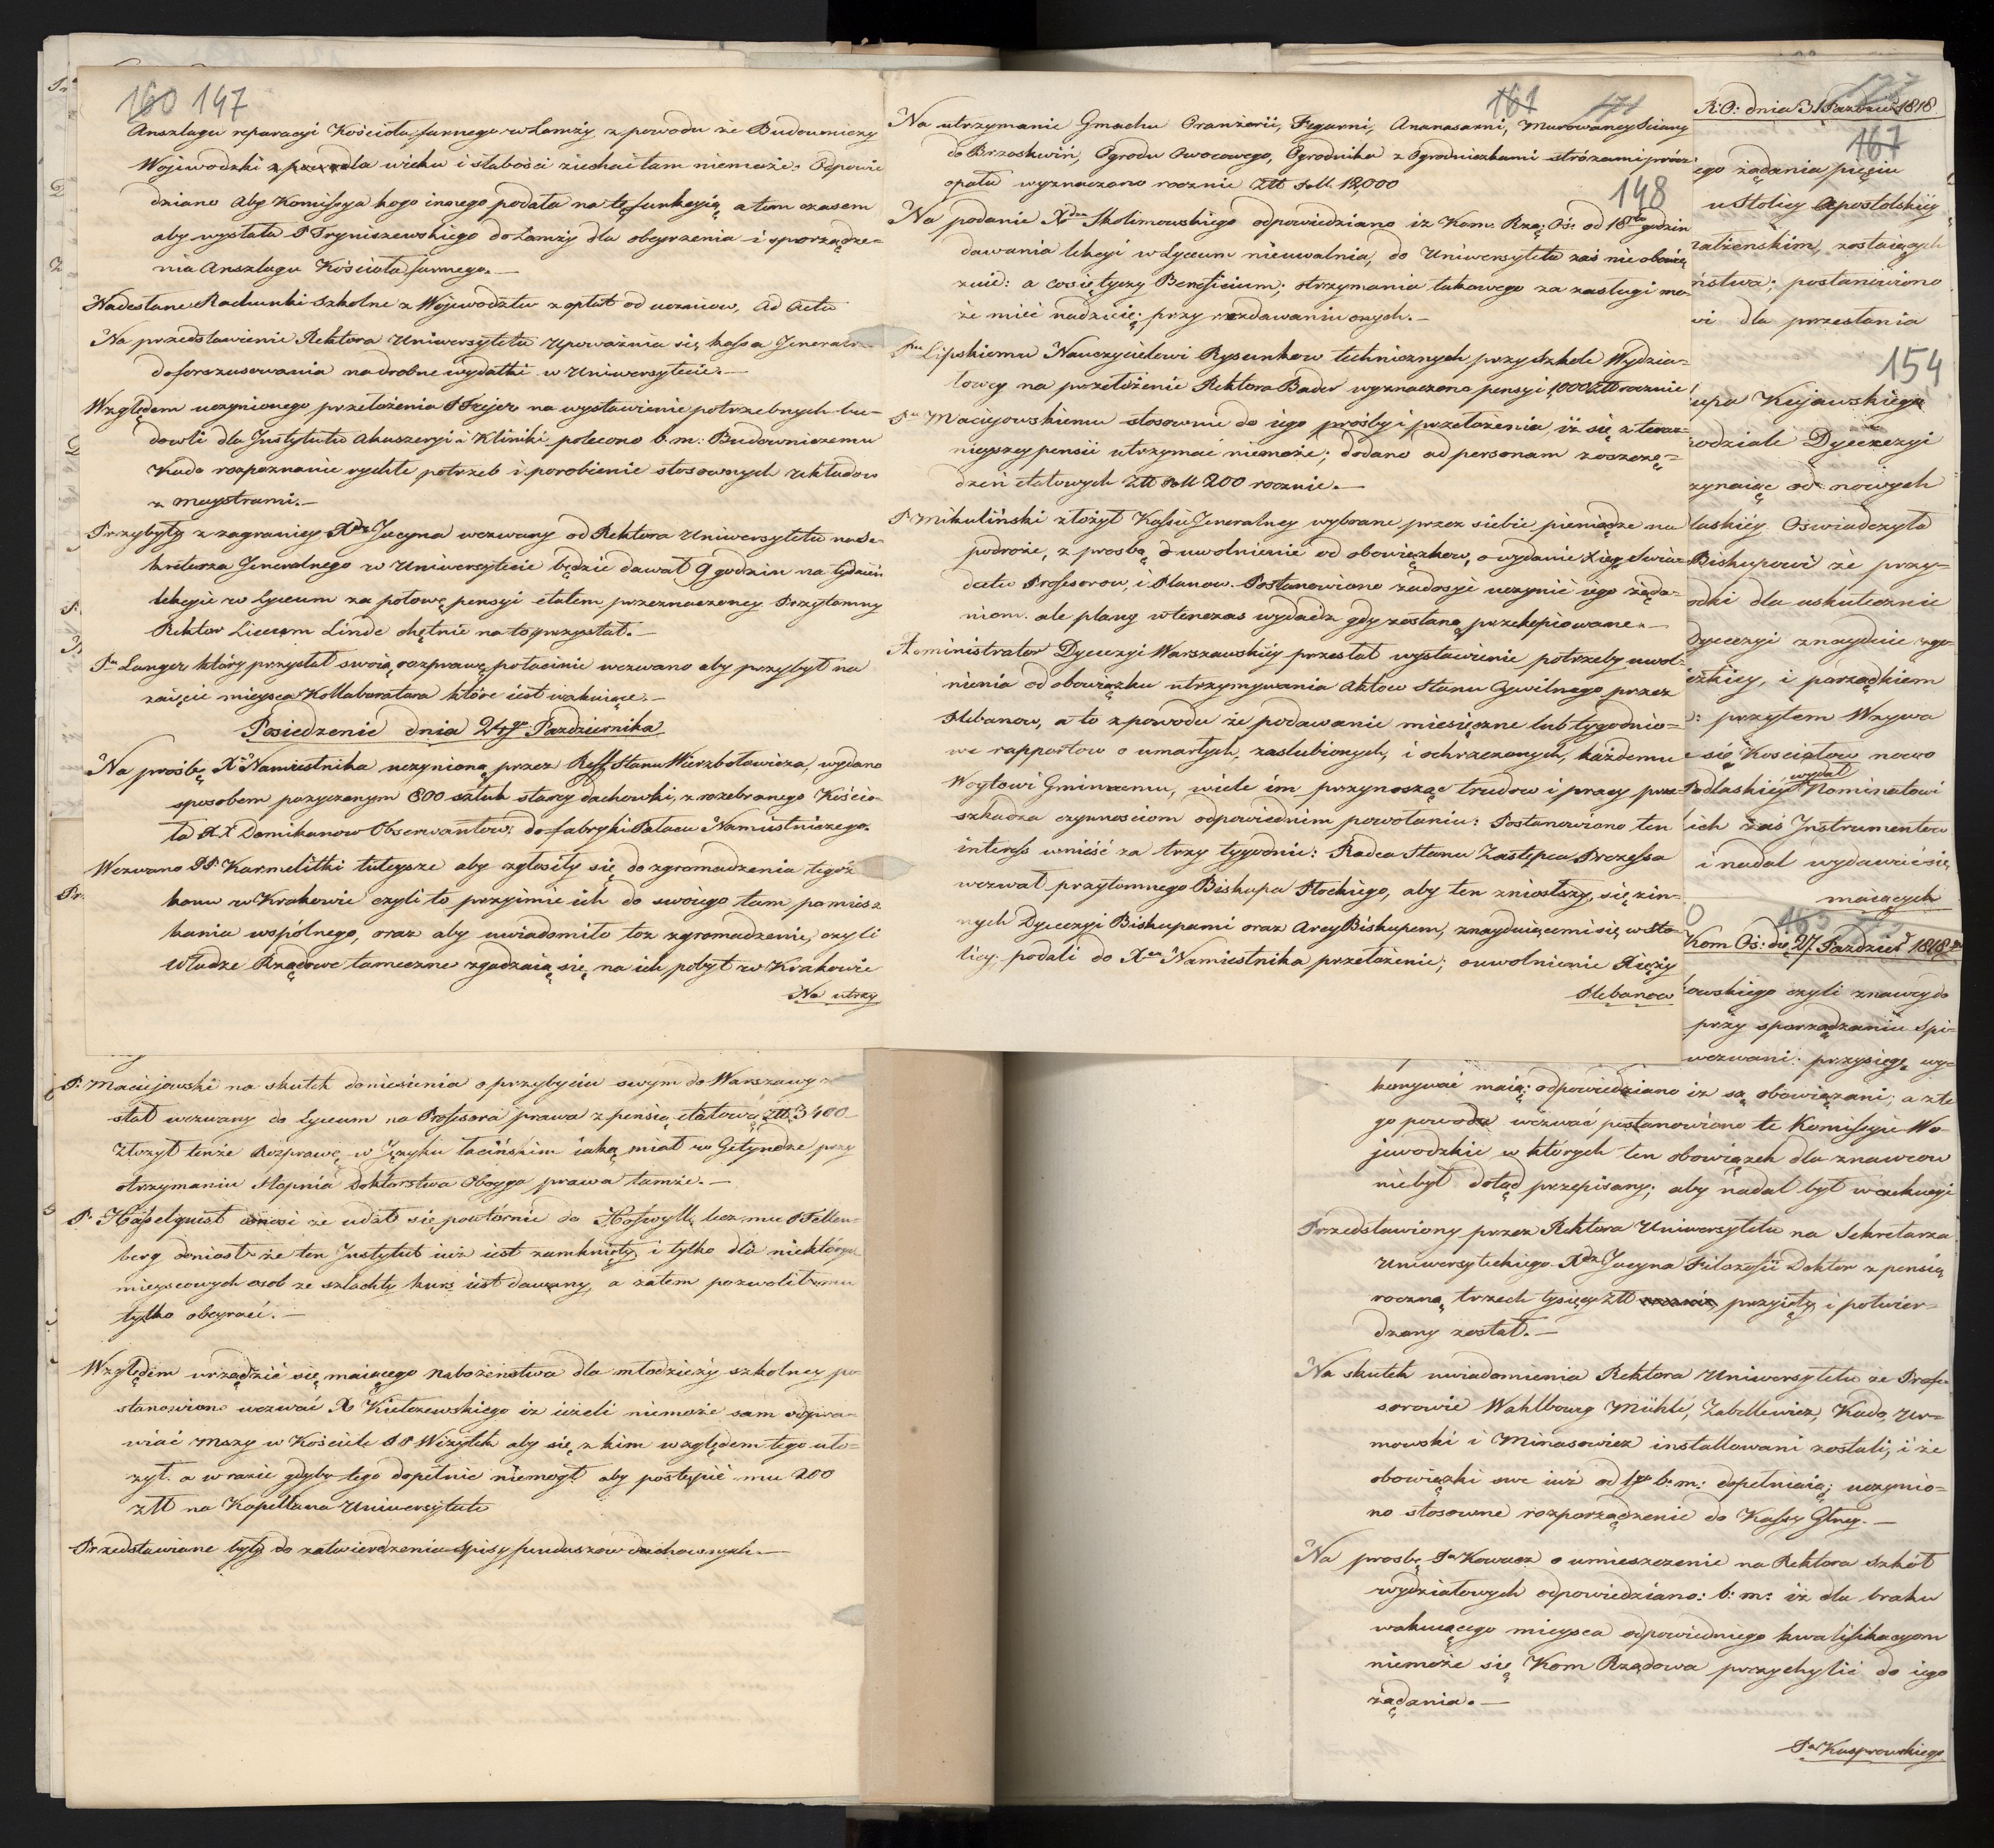 160 147
Anszlagu reparacyi Kościoła farnego w Łomży z powodu że Budowniczy
Wojewodzki dla wieku i słabości ziechać tam niemoże: Odpowie
dziano aby Kommissya kogo innego podała na tę funkcyią a tym czasem
aby wysłała P Tryniszewskiego do Łomży dla obeyrzenia i sporządze=
nia Anszlagu Kościoła farnego.—
Nadesłane Rachunki Szkolne z Wojewodztw z opłat od uczniow, ad Acta
Na przedstawienie Rektora Uniwersytetu upoważnia się kassa Jeneralna
do forszusowania na drobne wydatki w Uniwersytecie.—
Względem uczynionego przełożenia P Frejer na wystawienie potrzebnych bu=
dowli dla Instytutu Akuszeryi i Kliniki polecono b.m: Budowniczemu
Kado rozpoznanie rychłe potrzeb i porobienie stosownych układow
z maystrami.—
Przybyły z zagranicy Xdz Jucyna wezwany od Rektora Uniwersytetu na Se=
kretarza Jeneralnego w Uniwersytecie będzie dawał 9 godzin na tydzień
lekcyie w Lyceum za połowę pensyi etatem przeznaczoney Przytomny
Rektor Liceum Linde chętnie na to przystał.—
Pan Langer który przysłał swoią rozprawę po łacinie wezwano aby przybył na
zaięcie mieysca Kollaboratora które iest wakuiące.—
Posiedzenie dnia 24go Pazdziernika
Na prośbę Xcia Namiestnika uczynioną przez Reff Stanu Wierzbołowicza, wydano
sposobem pożyczonym 800 sztuk starey dachowki, z rozebranego Kościo=
ła XX Domikanow Obserwantow, do fabryki Pałacu Namiestniczego.
Wezwano PP Karmelitki tuteysze aby zgłosiły się do zgromadzenia tegóż
konu w Krakowie czyli to przyimie ich do swoiego tam pomiesz
kania wspólnego, oraz aby uwiadomiło toż zgromadzenie, czyli
Władze Rządowe tameczne zgadzaią się na ich pobyt w Krakowie
Na utrzy
161 171
Na utrzymanie Gmachu Oranżerii, Figarni, Ananasarni, Murowaney Sciany
do Brzoskwiń, Ogrodu Owocowego, Ogrodnika z Ogrodniczkami stróżami prócz
opału wyznaczono rocznie Ztt Poll. 12,000
148
Na podanie Xdza Skolimowskiego odpowiedziano iż Kom. Rzą: Oś: od 18tu godzin
dawania lekcyi w Lyceum nieuwalnia, do Uniwersytetu zaś nie obowią
zuie: a co się tyczy Beneficium; otrzymania takowego za zasługi mo=
że mieć nadzieię przy rozdawaniu onych.—
Pnu Lipskiemu Nauczycielowi Rysunkow technicznych przy Szkole Wydzia=
łowey na przełożenie Rektora Bader wyznaczono pensyi 1,000 Ztt rocznie
Pu Macieyowskiemu stosownie do iego prośby i przełożenia, iż się z teraz=
nieyszey pensii utrzymać niemoże; dodano ad personam z oszczę=
dzeń etatowych Ztt Poll 200 rocznie.—
P. Mikuliński złożył Kassie Jeneralney wybrane przez siebie pieniądze na
podróże, z prosbą o uwolnienie od obowiązkow, o wydanie Xiąg Swia=
dectw Professorow, i Planow. Postanowiono zadosyć uczynić iego żąda=
niom. ale plany wtenczas wydadz gdy zostaną przekopiowane.—
Administrator Dyecezyi Warszawskiéy przesłał wystawienie potrzeby uwol=
nienia od obowiązku utrzymywania Aktow Stanu Cywilnego przez
Plebanow, a to z powodu że podawanie miesięczne lub tygodnio=
we rapportow o umarłych, zaslubionych, i ochrzczonych, każdemu
Woytowi Gminnemu, wiele im przynosząc trudow i pracy prze=
szkadza czynnosciom odpowiednim powołaniu: Postanowiono ten
interess wnieść za trzy tygodnie: Radca Stanu Zastępca Prezessa
wezwał przytomnego Biskupa Płockiego, aby ten zniosłszy się z in=
nych Dyecezyi Biskupami oraz Arcy Biskupem, znayduiącemi się w Sto=
licy podali do Xcia Namiestnika przełożenie; o uwolnienie Xięży
Plebanow
R:O: dnia 31 Pazdzier 1818
167
ego żądania pięciu
u Stolicy Apostolskiéy
małżenskim, zostaiących
ństwa; postanowiono
wi dla przesłania
154
upa Kujawskiego
odziale Dyecezyi
zynaiąc od nowych
laskiéy Oświadczyła
Biskupowi że przy=
odki dla uskutecznie
Dyecezyi znaydzie zgo=
zkiey, i porządkiem
przytem Wzywa
e się Kościołow nowo
wydał
Podlaskiéy Nominatowi
ich zaś Instrumentow
i nadal wydawać się
maiących
163
Kom Oś: du 27 Pazdzier 1818
owskiego czyli znawcy do
przy sporządzaniu Spi=
wezwani: przysięgę wy=
P. Maciejowski na skutek doniesienia o przybyciu swym do Warszawy
stał wezwany do Lyceum na Professora prawa z pensią etatową Ztt. 3400
Złożył tenże Rozprawę w Języku łacińskim iaką miał w Getyndze przy
otrzymaniu Stopnia Doktorstwa Oboyga prawa tamże.—
P. Hasselquist donosi że udał się powtórnie do Hofwyll, lecz mu P Fellen=
berg doniosł że ten Instytut iuż iest zamknięty i tylko dla niektórych
mieyscowych osob ze szlachty kurs iest dawany, a zatem pozwolił mu
tylko obeyrzeć.—
Względem urządzić się maiącego nabożeństwa dla młodzieży szkolney po=
stanowiono wezwać X Kiełczewskiego iż ieżeli niemoże sam odpra=
wiać Mszy w Kościele PP Wizytek aby się z kim względem tego uło=
żył. a w razie gdyby tego dopełnic niemogł aby postąpić mu 200
ztt na Kapellana Uniwersytetu
Przedstawiane były do zatwierdzenia spisy funduszow duchownych.—
konywać maią: odpowiedziano iż są obowiązani; a z te
go powodu wezwać postanowiono te Komissyie Wo
jewodzkie w których ten obowiązek dla znawcow
niebył dotąd przepisany; aby nadal był
Przedstawiony przez Rektora Uniwersytetu na Sekretarza
Uniwersyteckiego Xdz Jucyna Filozofii Doktor z pensią
roczną trzech tysięcy Ztt przyięty i potwier=
dzony został.—
Na skutek uwiadomienia Rektora Uniwersytetu że Profes
sorowie Wahlbourg Mühle, Zabellewicz, Kado, Ur=
mowski i Minasowicz installowani zostali, i że
obowiązki swe iuż od 1go b.m: dopełniaią; uczynio=
no stosowne rozporządzenie do Kassy Głney.—
Na prosbę Pa Kowacz o umieszczenie na Rektora Szkół
wydziałowych odpowiedziano: b: m: iż dla braku
wakuiącego mieysca odpowiedniego kwalifikacyom
niemoże się Kom Rządowa przychylić do iego
żądania.—
Pa Kasprowskiego